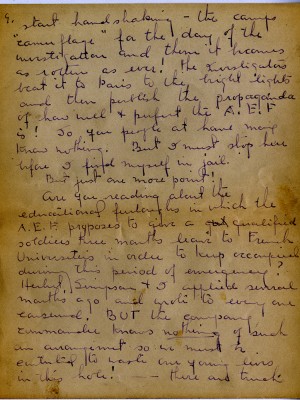 9.
start handshaking - the camps
"camouflage" for the day of the
investigation and then it becomes
as rotten as ever! The investigators
beat it to Paris to the bright lights
and then publish the propaganda
of how well & perfect the A.E.F
is! So you people at home may
know nothing. But I must stop here
before I find myself in jail.
But just one more point!
Are you reading about the
educational furloughs in which the
A.E.F proposes to give a qualified
soldiers three months leave to French
Universitys in order to keep occupied
during this period of emergency?
Herby Simpson & I applied several
months ago and wrote to every one
concerned! BUT the company
commander knows nothing of such
an arrangement so we must be
contented to waste our young lives
in this hole! — there and truck